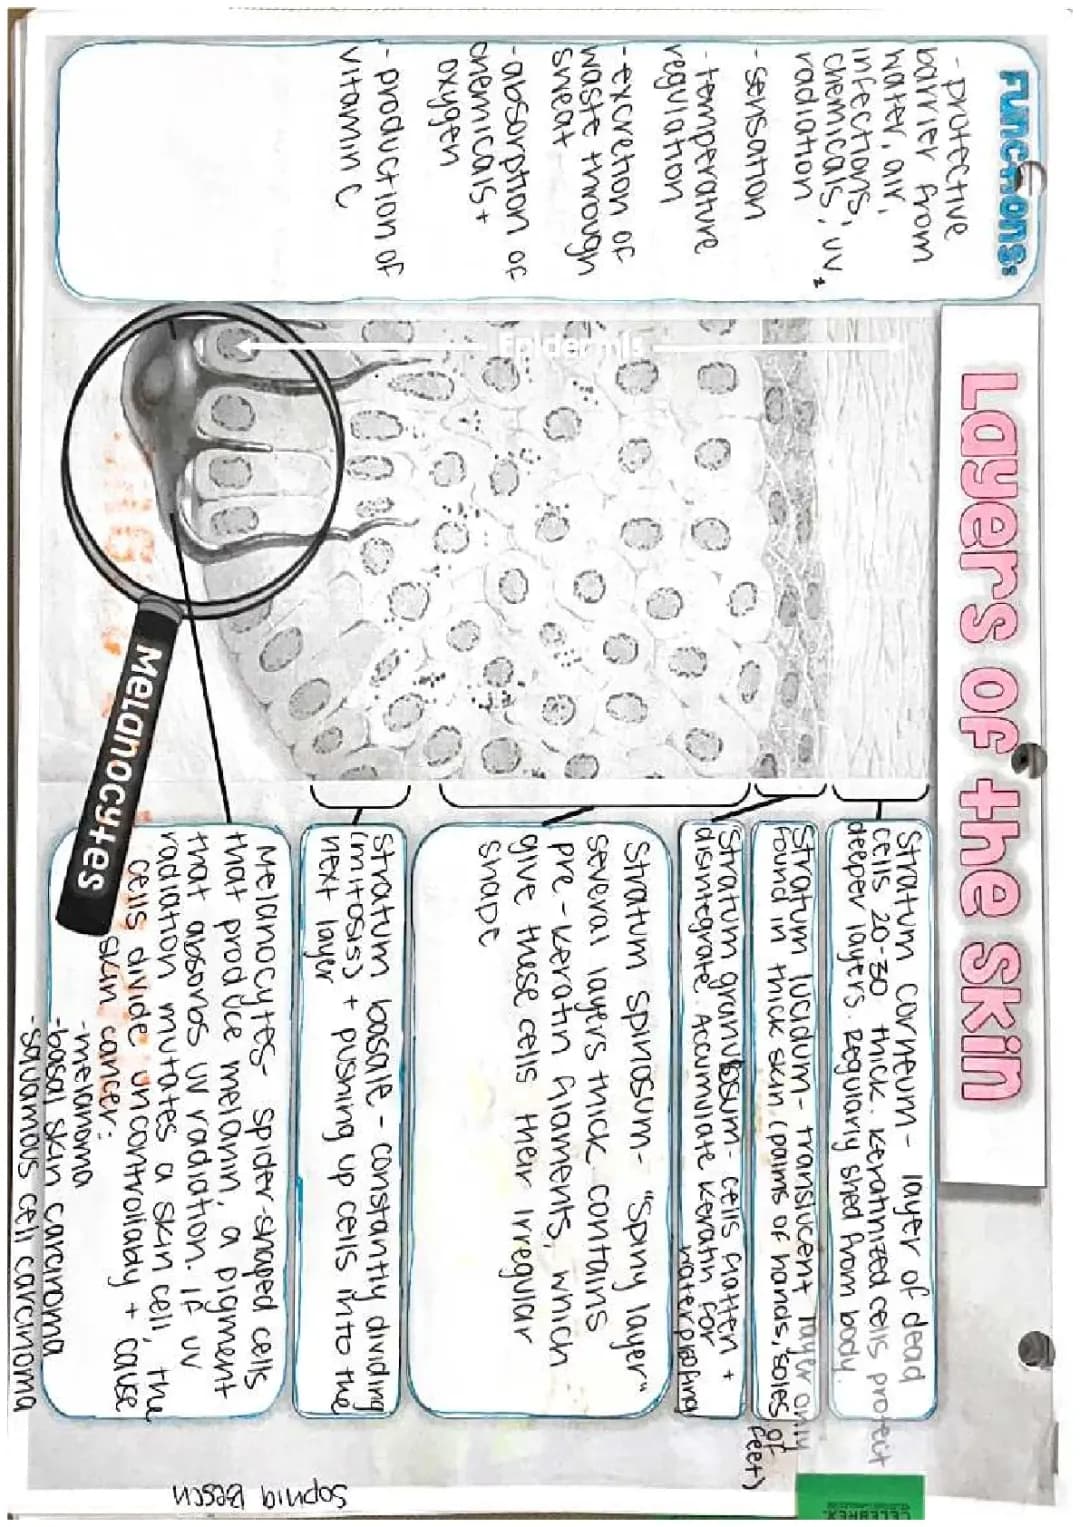 Layers of the Skin
Functions:
- protective
barrier from
water, air,
infections,
chemicals, uv
radiation
- sensation
- temperature
regulation
- excretion of
waste through
sweat
- absorption of
chemicals +
oxygen
- production of
vitamin C
Epidermis
Stratum corneum - layer of dead
cells 20-30 thick. Keratinized cells protect
deeper layers. Regularly shed from body.
Stratum lucidum - translucent layer only
found in thick skin (palms of hands, soles of
feet)
Stratum granulosum - cells flatten +
disintegrate. Accumulate keratin for
waterproofing
Stratum spinosum - "spiny layer"
several layers thick. contains
pre-keratin filaments, which
give these cells their irregular
shape
Stratum basale - constantly dividing
(mitosis) + pushing up cells into the
next layer
Melanocytes - spider-shaped cells
that produce melanin, a pigment
that absorbs uv radiation. If uv
radiation mutates a skin cell, the
cells divide uncontrollably + cause
skin cancer:
- melanoma
- basal skin carcinoma
- squamous cell carcinoma
Melanocytes
Sophia Besch
CELEBREX